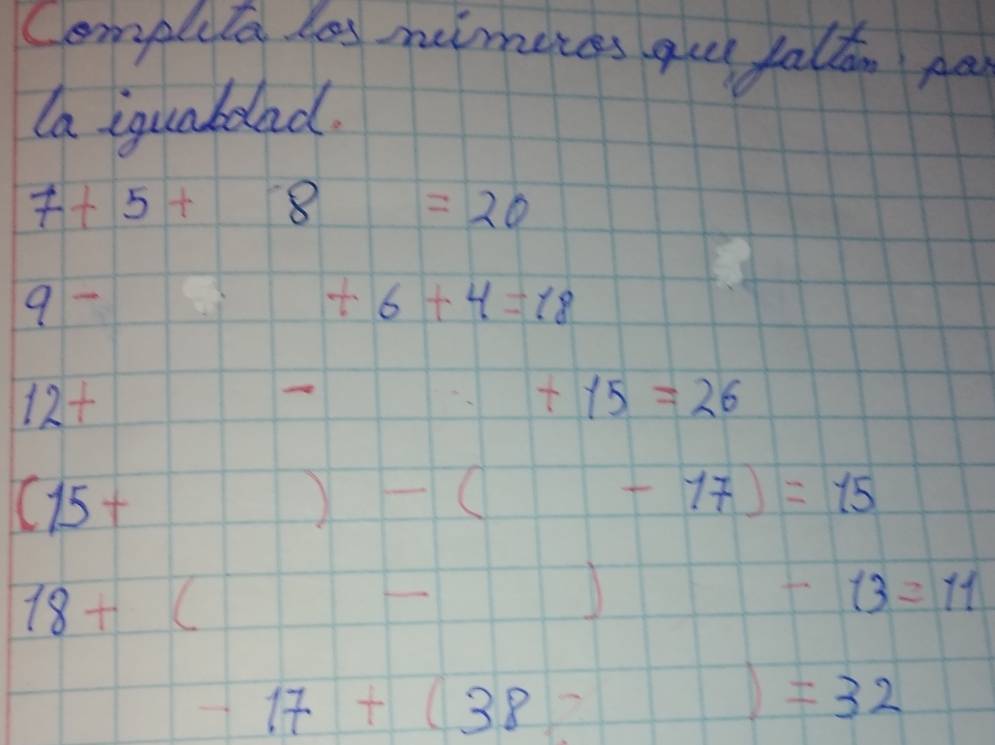 Completa los números que faltan par
la igualdad.
7 + 5 + 8 = 20
9 - + 6 + 4 = 18
12 + - + 15 = 26
(15 + ) - ( - 17) = 15
18 + ( - ) - 13 = 11
- 17 + (38 - ) = 32